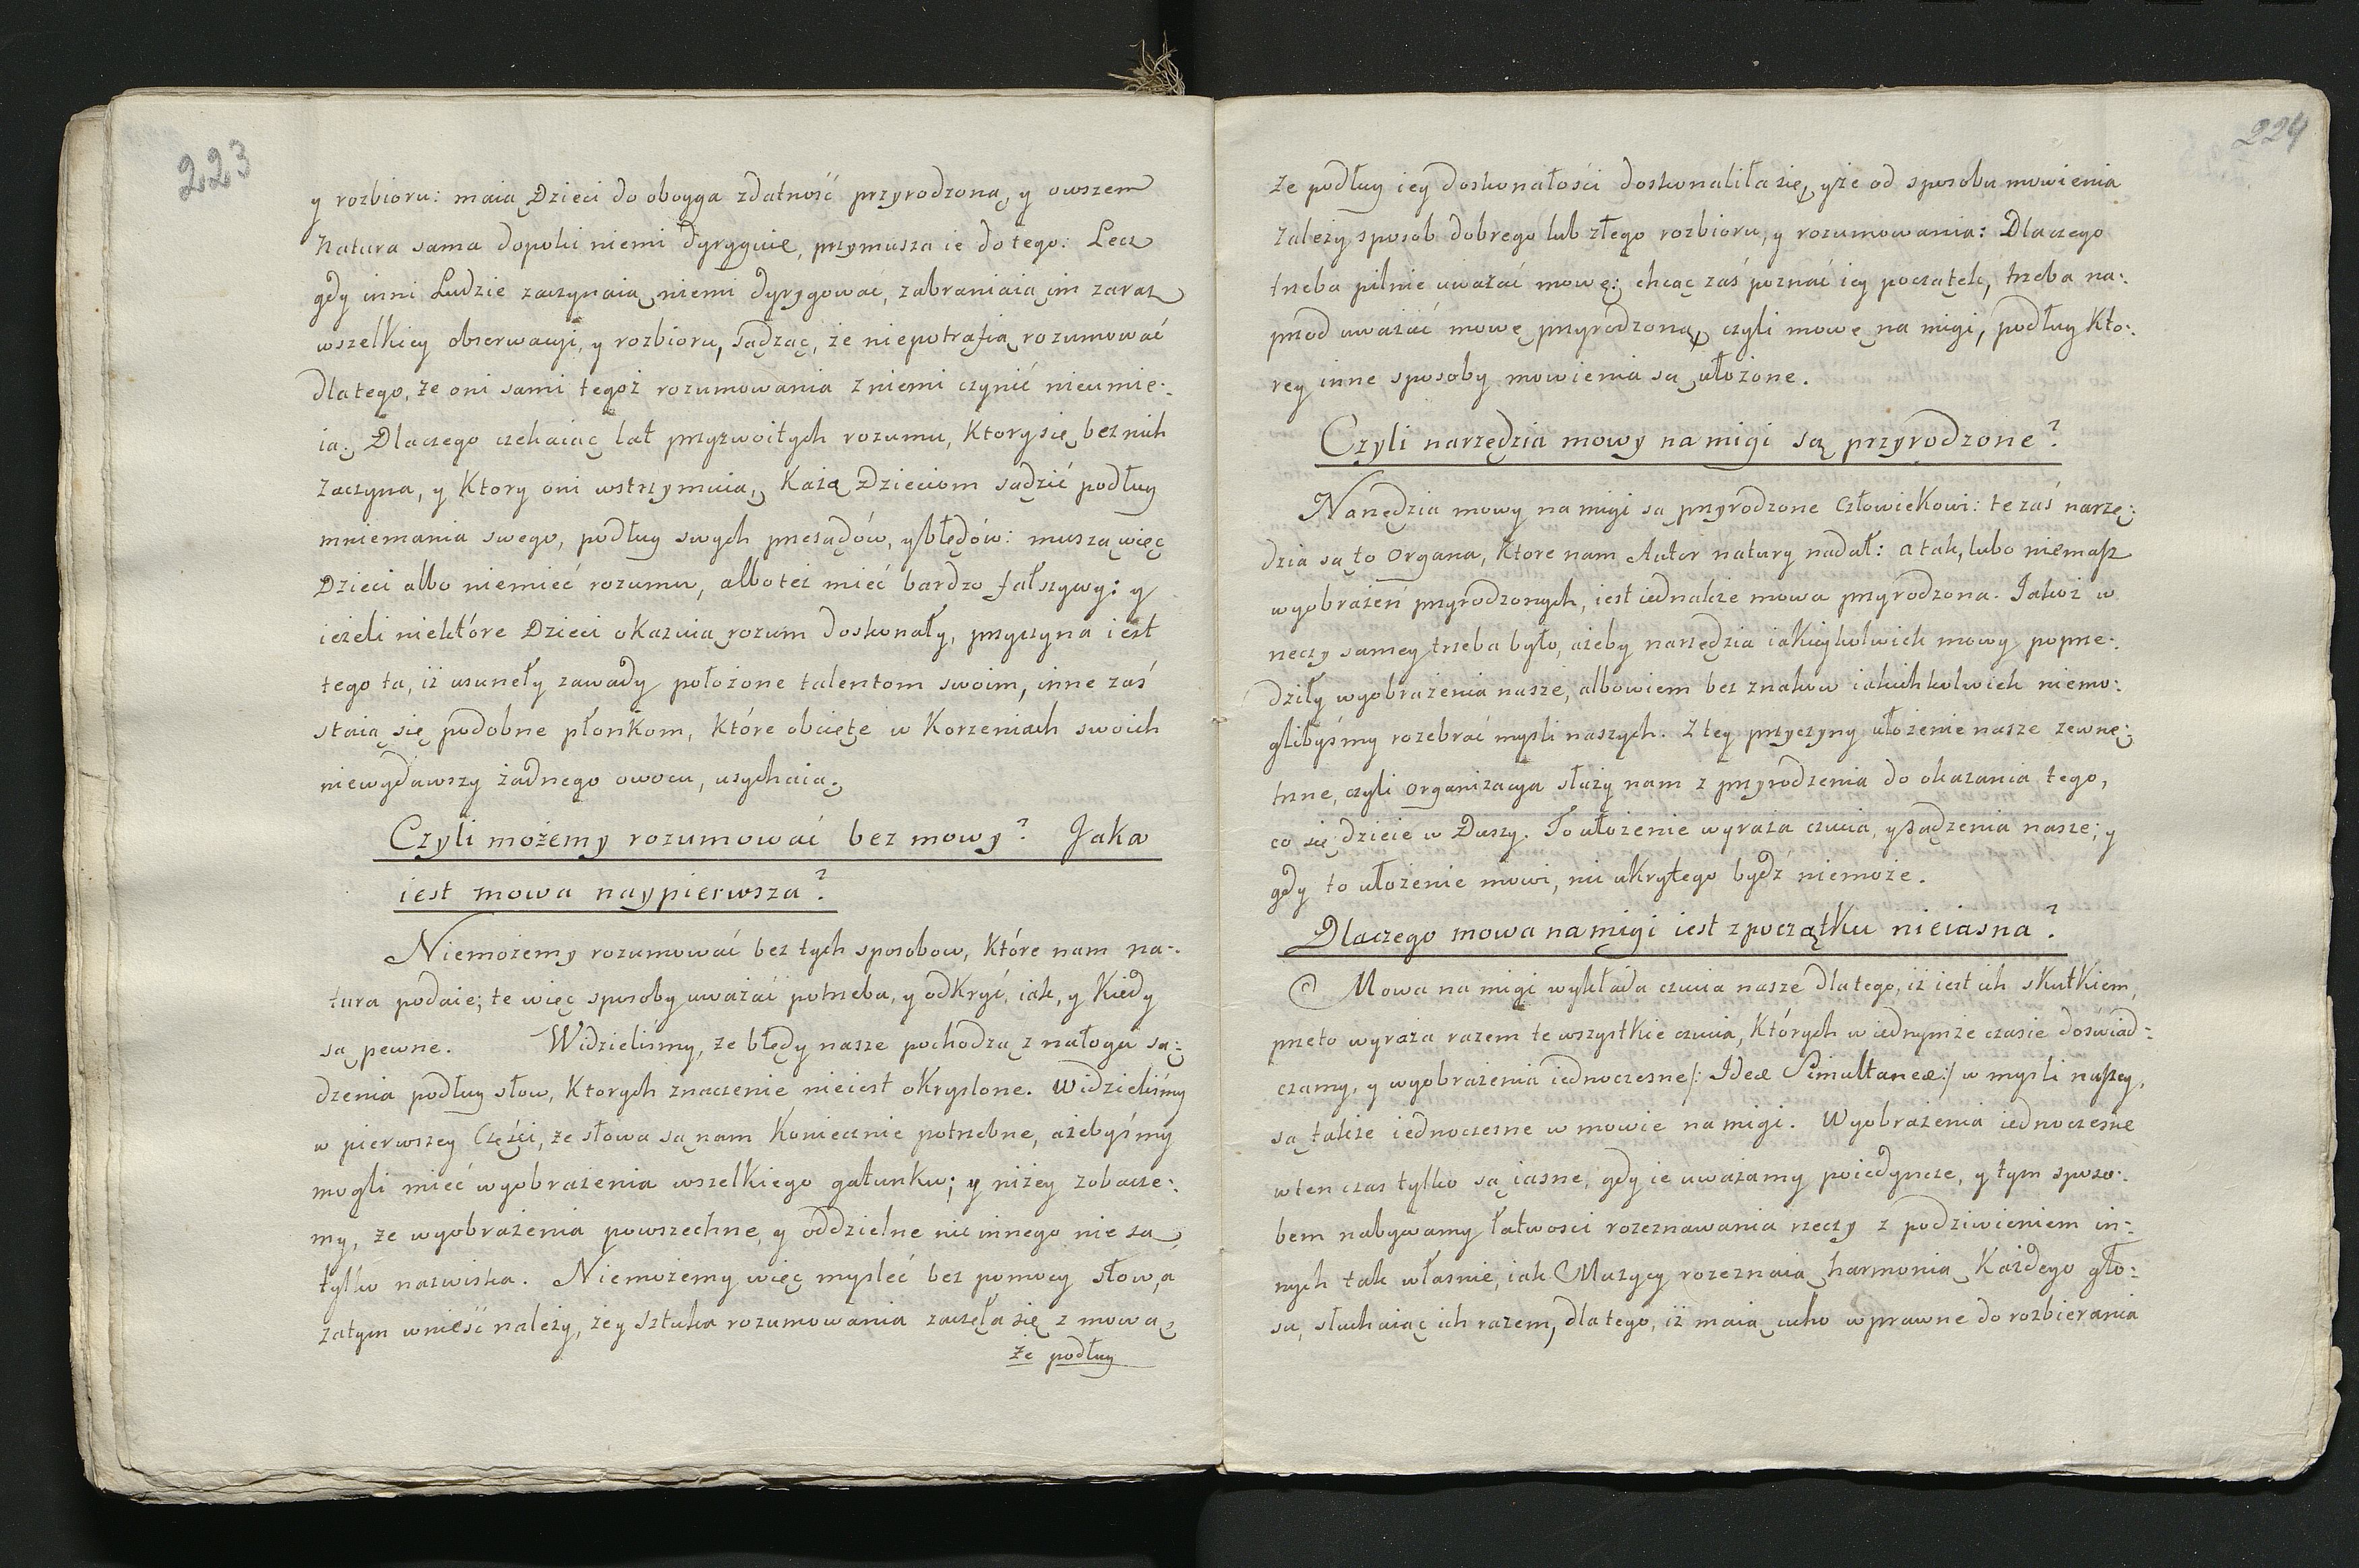 223
y rozbioru: maią Dzieci do oboyga zdatność przyrodzoną, y owszem
Natura sama dopoki niemi dyryguie, przymusza ie do tego: Lecz
gdy inni Ludzie zaczynaią niemi dyrygować, zabraniaią im zaraz
wszelkiey obserwacyi, y rozbioru, sądząc, że niepotrafią rozumować
dlatego, że oni sami tegoż rozumowania z niemi czynić nieumie:
ią. Dlaczego czekaiąc lat przyzwoitych rozumu, Ktory się bez nich
zaczyna, y Ktory oni wstrzymuią, Każą Dzieciom sądzić podług
mniemania swego, podług swych przesądów, y błędów: muszą więc
Dzieci albo niemieć rozumu, albo też mieć bardzo fałszywy: y
ieżeli niektóre Dzieci okazuią rozum doskonały, przyczyna iest
tego ta, iż usuneły zawady położone talentom swoim, inne zaś
staią się podobne płonkom, które obcięte w Korzeniach swoich
niewydawszy żadnego owocu, usychaią.
Czyli możemy rozumować bez mowy? Jaka
iest mowa naypierwsza?
Niemożemy rozumować bez tych sposobow, które nam na:
tura podaie; te więc sposoby uważać potrzeba, y odkryć, iak, y Kiedy
są pewne. Widzieliśmy, że błędy nasze pochodzą z nałogu są:
dzenia podług słow, Ktorych znaczenie nieiest okryslone. Widzieliśmy
w pierwszey Części, że słowa są nam Koniecznie potrzebne, ażebyśmy
mogli mieć wyobrażenia wszelkiego gatunku; y niżey zobacze:
my, że wyobrażenia powszechne, y oddzielne nic innego nie są
tylko nazwiska. Niemożemy więc mysleć bez pomocy słow, a
zatym wnieść należy, że y sztuka rozumowania zaczęła się z mową
że podług
224
że podług iey doskonałości doskonaliła się, y że od sposobu mowienia
zależy sposob dobrego lub złego rozbioru, y rozumowania: Dlaczego
trzeba pilnie uważać mowę: chcąc zaś poznać iey początek, trzeba na:
przod uważać mowę przyrodzoną, czyli mowę na migi, podług Kto:
rey inne sposoby mowienia są ułożone.
Czyli narzędzia mowy na migi są przyrodzone?
Narzędzia mowy na migi są przyrodzone Człowiekowi: te zaś narzę:
dzia są to Organa, Ktore nam Autor natury nadał: a tak, lubo niemasz
wyobrażeń przyrodzonych, iest iednakże mowa przyrodzona. Jakoż w
rzeczy samey trzeba było, ażeby narzędzia iakieykolwiek mowy poprze:
dziły wyobrażenia nasze, albowiem bez znakow iakichkolwiek niemo:
glibyśmy rozebrać mysli naszych. Z tey przyczyny ułożenie nasze zewnę:
trzne, czyli organizacya służy nam z przyrodzenia do okazania tego,
co się dzieie w Duszy. To ułożenie wyraża czucia, y sądzenia nasze; y
gdy to ułożenie mowi, nic ukrytego bydź niemoże.
Dlaczego mowa na migi iest z początku nieiasna?
Mowa na migi wykłada czucia nasze dlatego, iż iest ich skutkiem,
przeto wyraża razem te wszystkie czucia, Których w iednymże czasie doświad:
czamy, y wyobrażenia iednoczesne /: Ideæ Simultaneæ :/ w mysli naszey,
są także iednoczesne w mowie na migi. Wyobrażenia iednoczesne
w ten czas tylko są iasne, gdy ie uważamy poiedyncze, y tym sposo:
bem nabywamy łatwosci rozeznawania rzeczy z podziwieniem in:
nych tak własnie, iak Muzycy rozeznaią harmonią Każdego gło:
su, słuchaiąc ich razem, dlatego, iż maią ucho wprawne do rozbierania